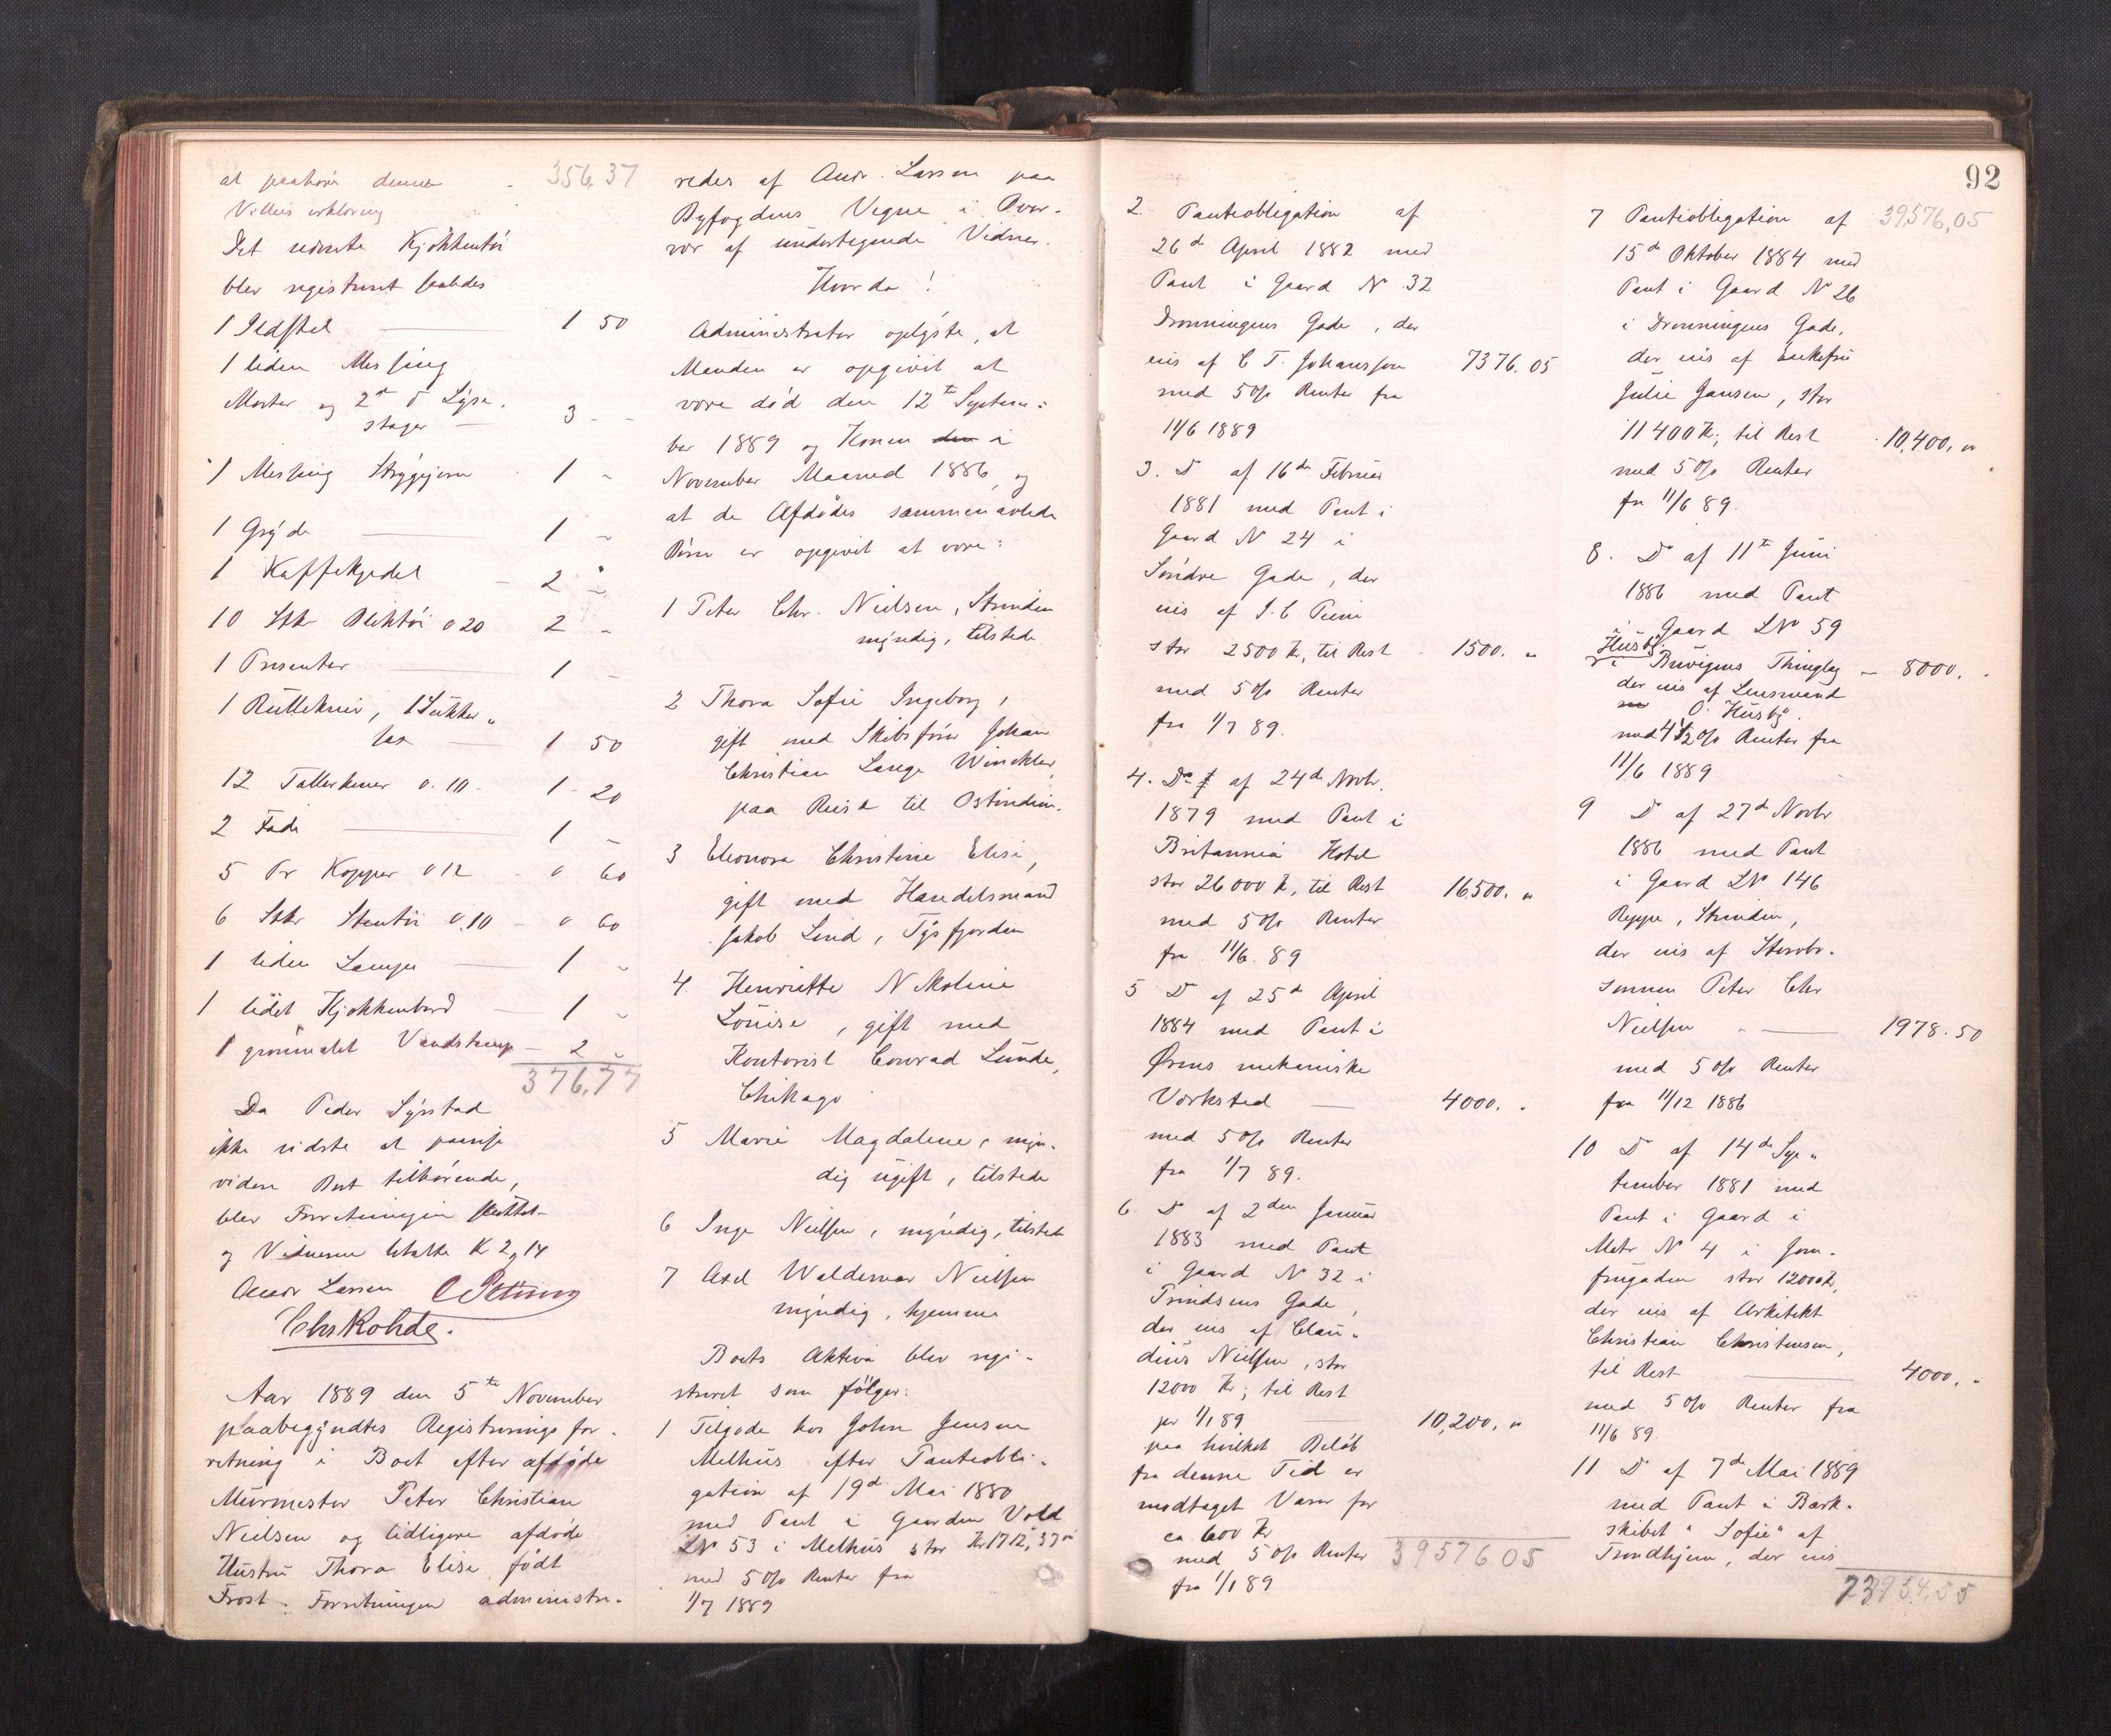 at paahøre denne - 356,37
Villies erklæring
Det nævnte Kjøkkentøi
blev registreret saaledes
1 Ildstel — 1 50
1 liden Messing
Morter og 2 Lyse-
stager — 3 -
1 Messing Strygejern - 1 -
1 Gryde — 1 -
1 Kaffekjedel - 2 -
10 Stk Bliktøi a 20 2 -
1 Presenter — 1 -
1 Rullekniv, 1 Sukker„
sax — 1 50
12 Tallerkener a 10 - 1 - 20
2 Fade — 1 -
5 Pr Kopper a 12 - " 60
6 Stkr Stentøi a 10 - " 60
1 liden Lampe — 1 -
1 lidet Kjøkkenbord — 1 -
1 grønmalet Vandstamp — 2 -
376,77
Da Peder Syrstad
ikke vidste at paavise
videre Boet tilhørende,
blev Forretningen sluttet
og Vidnerne betalte K 2,14
Andr Larsen
Chr Rohde.
Aar 1889 den 5te November
paabegyndtes Registreringsfor-
retning i Boet efter afdøde
Murmester Peter Christian
Nielsen og tidligere afdøde
Hustru Thora Elise, født
Frost. Forretningen administre-
redes af Andr. Larsen paa
Byfogdens Vegne i Over-
vær af undertegnede Vidner.
Hvorda!
Administrator oplyste, at
Manden er opgivet at
være død den 12te Septem-
ber 1889 og Konen den i
November Maaned 1886, og
at de Afdødes sammenavlede
Børn er opgivet at være:
1 Peter Chr. Nielsen, Strinden
myndig, tilstede
2 Thora Sofie Ingeborg,
gift med Skibsfører Johan
Christian Lange Winckler,
paa Reise til Ostindien.
3 Eleonora Christine Elise,
gift med Handelsmand
Jakob Lind, Tysfjorden
4. Henriette Nikoline
Louise, gift med
Kontorist Conrad Lunde,
Chikago
5 Marie Magdalene, myn-
dig ugift, tilstede
6 Inge Nielsen, myndig, tilstede
7 Axel Waldemar Nielsen
myndig, hjemme
Boets Aktiva blev regi-
streret som følger:
1 Tilgode hos John Jensen
Melhus efter Panteobli-
gation af 19de Mai 1880
med Pant i Gaarden Vold
LN 53 i Melhus stor Kr 1712,37
med 5 0/0 Renter fra
1/7 1889
92
2. Panteobligation af
26de April 1882 med
Pant i Gaard No 32
Dronningens Gade, der
eies af C T. Johansson 7376.05
med 5 0/0 Renter fra
11/6 1889
3. Do af 16de Februar
1881 med Pant i
Gaard No 24 i
Søndre Gade, der
eies af
stor 2500 Kr, til Rest - 1500. „
med 5 0/0 Renter
fra 1/7 89.
4. Do af 24de Novbr.
1879 med Pant i
Britannia Hotel
stor 26000 Kr, til Rest 16,500. „
med 5 0/0 Renter
fra 11/6. 89
5 Do af 25de April
1884 med Pant i
Ørens mekaniske
Værksted — 4000. „
med 5 0/0 Renter
fra 1/7 89.
6. Do af 2den Januar
1883 med Pant
i Gaard No 32 i
Prindsens Gade,
der eies af Clau„
dius Nielsen, stor
12000 Kr; til Rest
pr 1/1 89 — 10,200, „
paa hvilket Beløb
fra denne Tid er
modtaget Varer for
ca 600 Kr
med 5 0/0 Renter 39576 05
fra 1/1 89
7 Panteobligation af 39,576,05
15de Oktober 1884 med
Pant i Gaard No 26
i Dronningens Gade,
der eies af Enkefru
Julie Jansen, stor
11400 Kr; til Rest 10,400, „
med 5 0/0 Renter
fra 11/6 89.
8. Do af 11te Juni
1886 med Pant
i Gaard LNo 59
Husby
i Buvigens Thinglag — 8000. „
der eies af Lensmand
O. Husby.
med 4 1/2 0/0 Renter fra
11/6 1889
9 Do af 27de Novbr
1886 med Pant
i Gaard LNo 146
Reppe, Strinden,
der eies af Stervbo-
sønnen Peter Chr
Nielsen — 1978.50
med 5 0/0 Renter
fra 11/12 1886
10 Do af 14de Sep„
tember 1881 med
Pant i Gaard i
Matr No 4 i Jom-
frugaden stor 12000 Kr,
der eies af Arkitekt
Christian Christensen,
til Rest — 4000, „
med 5 0/0 Renter fra
11/6 89.
11 Do af 7de Mai 1889
med Pant i Bark-
skibet "Sofie" af
Trondhjem, der eies